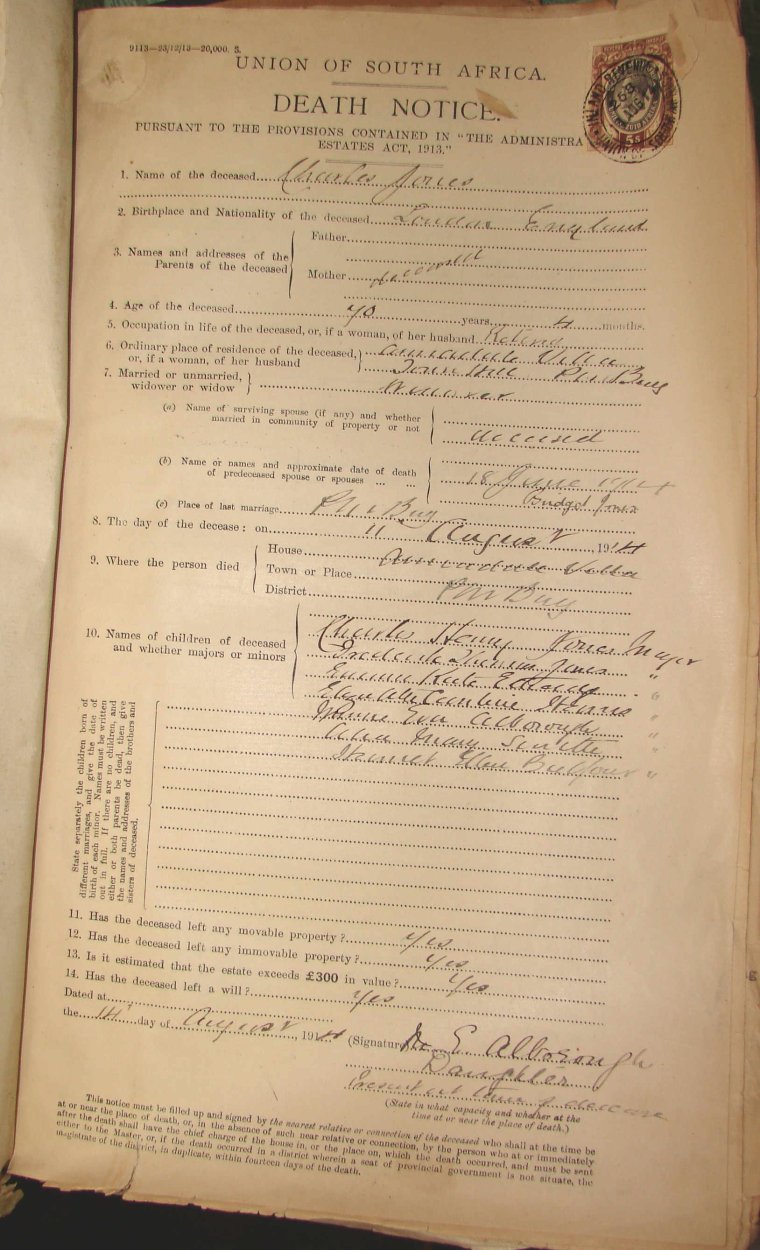 9113—23/12/13—20,000. S.
UNION OF SOUTH AFRICA.
DEATH NOTICE.
PURSUANT TO THE PROVISIONS CONTAINED IN "THE ADMINISTRA
ESTATES ACT, 1913."
INLAND REVENUE
1. Name of the deceased Charles Jones
2. Birthplace and Nationality of the deceased London England
3. Names and addresses of the Parents of the deceased
Father
Mother deceased
4. Age of the deceased 70 years 4 months.
5. Occupation in life of the deceased, or, if a woman, of her husband Retired
6. Ordinary place of residence of the deceased, or, if a woman, of her husband Villa
Hill
7. Married or unmarried, widower or widow Widower
(a) Name of surviving spouse (if any) and whether married in community of property or not
deceased
(b) Name or names and approximate date of death of predeceased spouse or spouses ... ...
18 June 1914
Bridget Jones
(c) Place of last marriage
8. The day of the decease: on 11th August, 1914
9. Where the person died
House Villa
Town or Place
District
10. Names of children of deceased and whether majors or minors
Charles Henry Jones Major
Frederick Jones "
Emma Kate "
Elizabeth Caroline "
Eva Alborough "
Mary "
Harriet Ellen "
State separately the children born of
different marriages, and give the date of
birth of each minor. Names must be written
out in full. If there are no children, and
either or both parents be dead, then give
the names and addresses of the brothers and
sisters of deceased.
11. Has the deceased left any movable property? Yes
12. Has the deceased left any immovable property? Yes
13. Is it estimated that the estate exceeds £300 in value? Yes
14. Has the deceased left a will? Yes
Dated at
the 14th day of August, 1914
(Signature) E Alborough
Daughter
Present at time of decease
(State in what capacity and whether at the
time at or near the place of death.)
This notice must be filled up and signed by the nearest relative or connection of the deceased who shall at the time be
at or near the place of death, or, in the absence of such near relative or connection, by the person who at or immediately
after the death shall have the chief charge of the house in, or the place on, which the death occurred, and must be sent
either to the Master, or, if the death occurred in a district wherein a seat of provincial government is not situate, the
magistrate of the district, in duplicate, within fourteen days of the death.